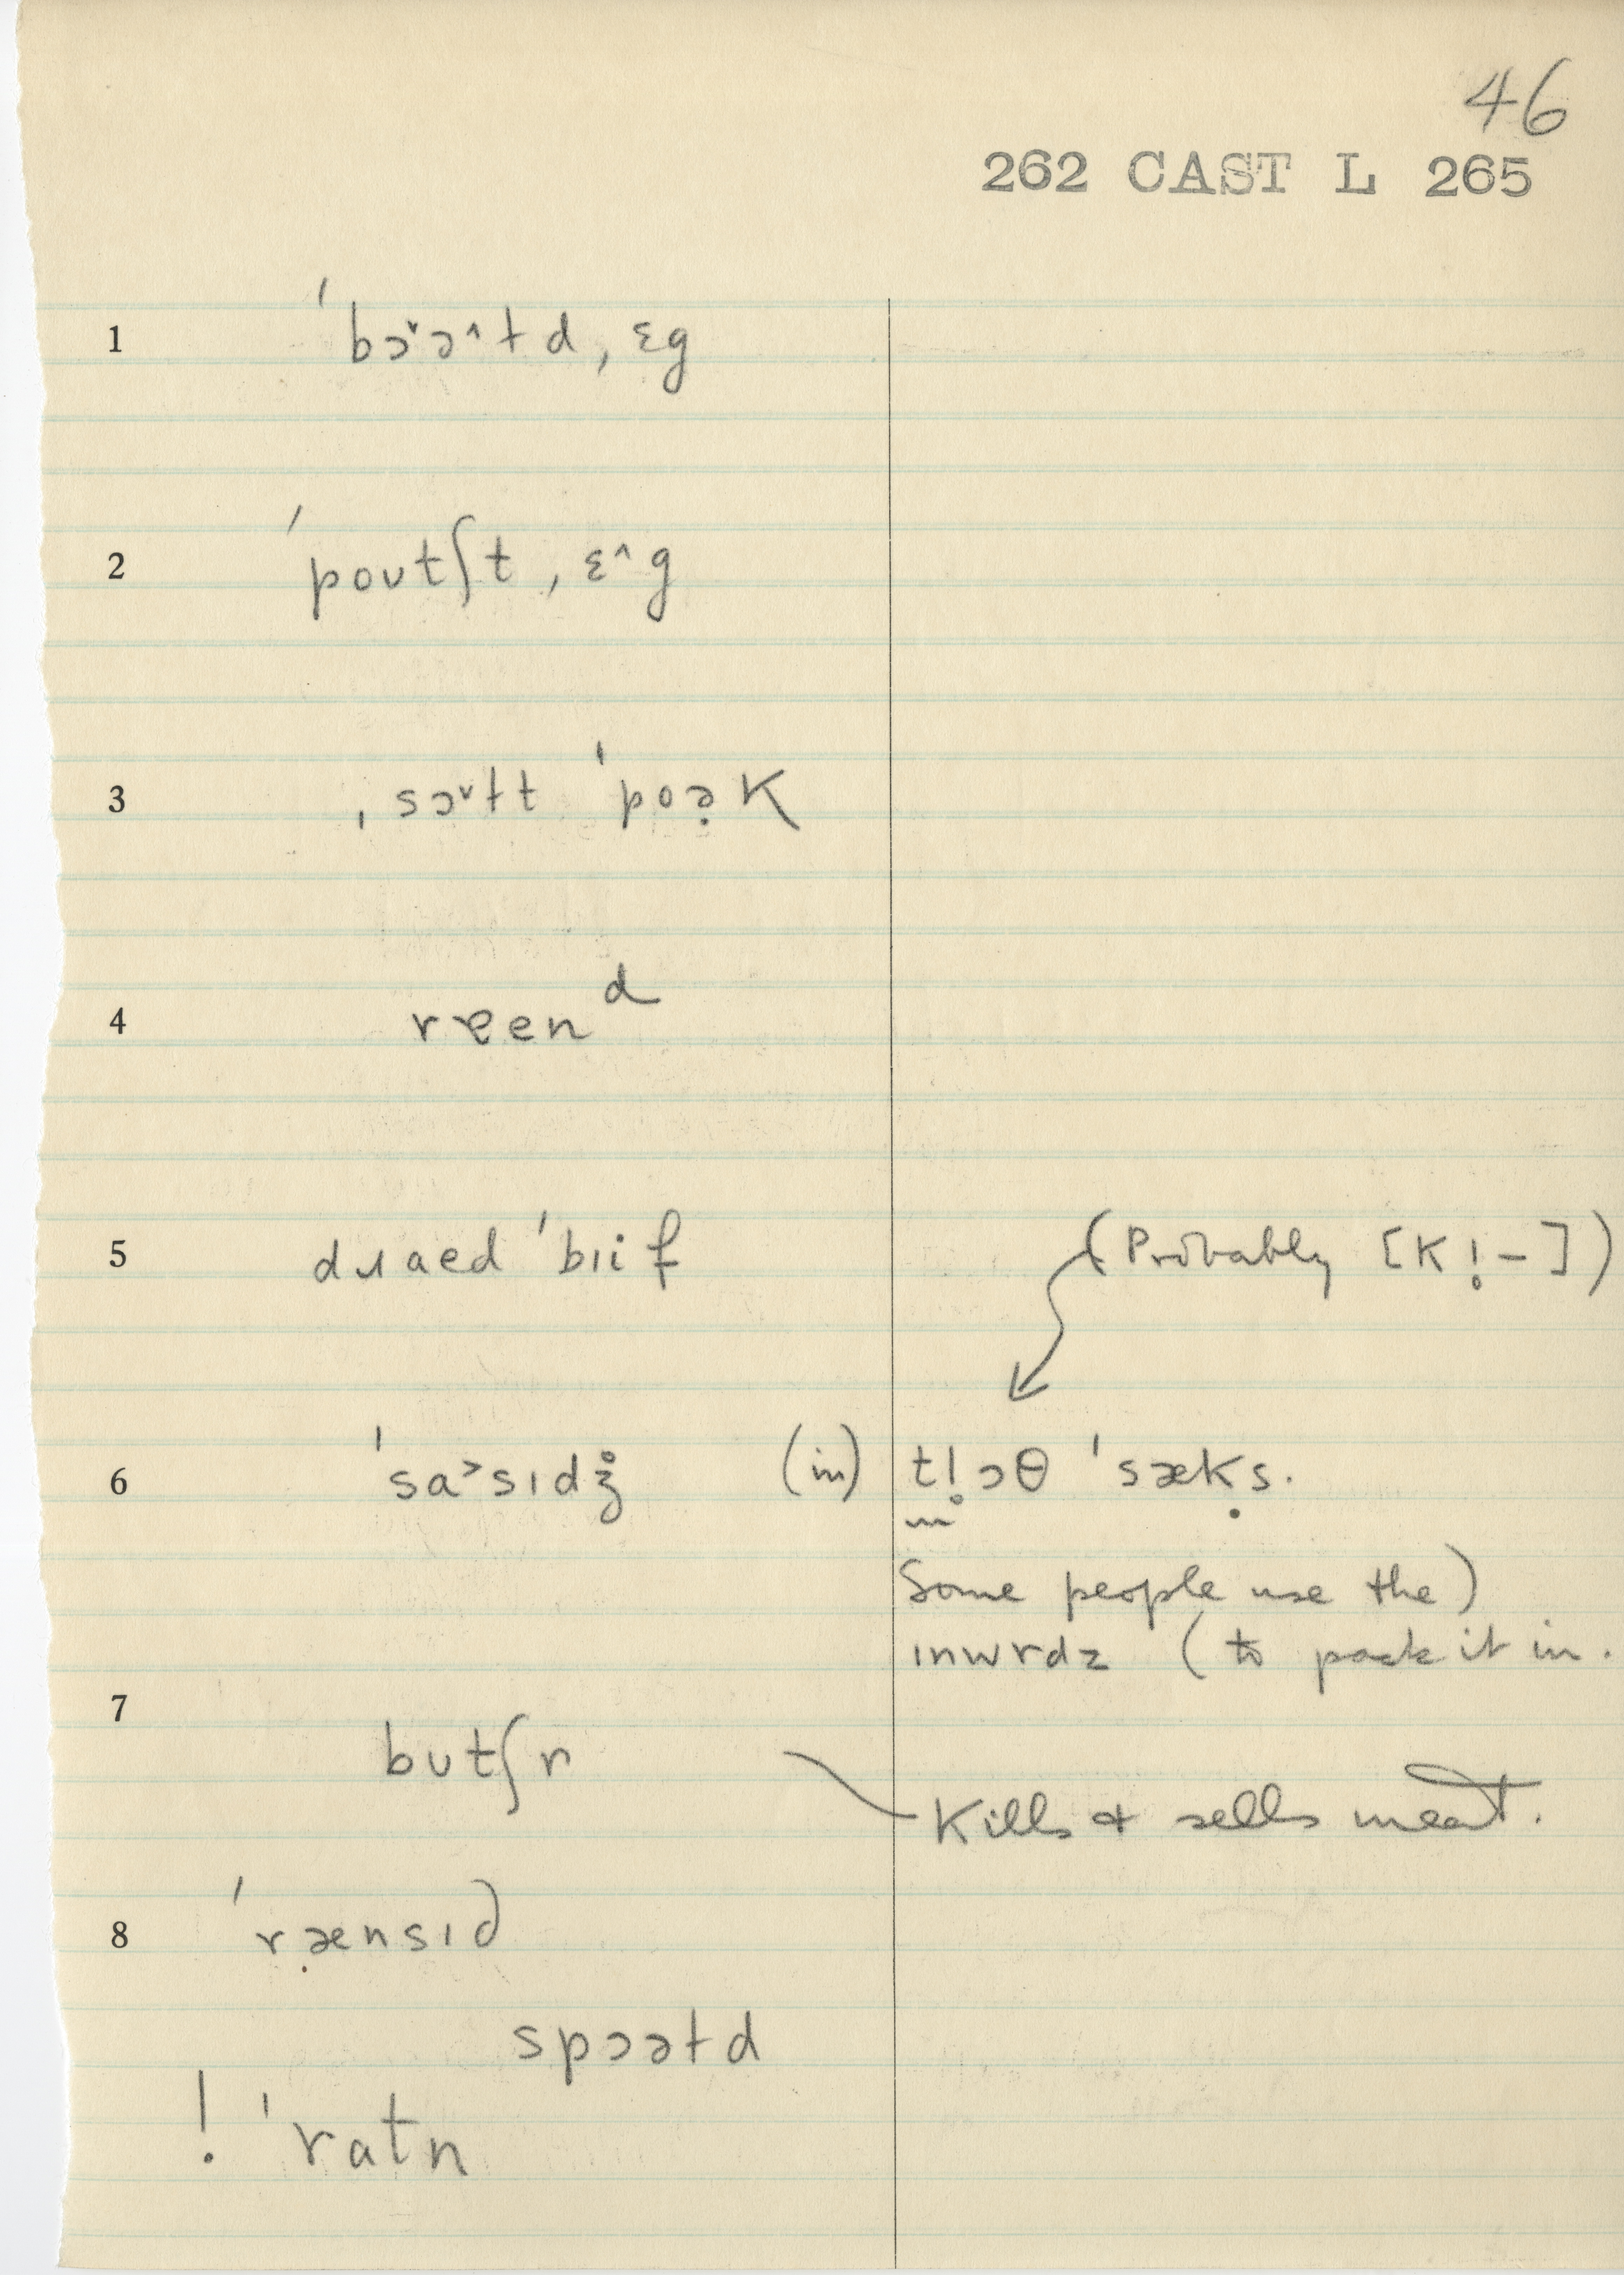 46
262 CAST L 265
1 ˈbɔ˅ɔ˄ɫd ˌɛg
2 ˈpoʊtʃt ˌɛ˄g
3 ˌsɔ˅ɫt ˈpoə̣k
4 rɐend
5 dɹaed ˈbɪif (Probably [K!-])
6 ˈsa˃sɪdʒ̊ (in) t!ɔθ ˈsæḳs.
Some people use the)
ɪnwrdz (to pack it in.
7 bʊtʃr
Kills & sells meat.
8 ˈræ̣nsɪd
spɔəɫd
! ˈratn